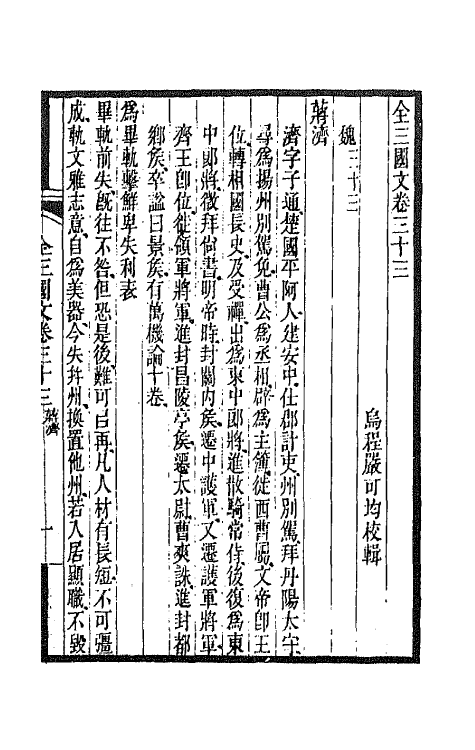 全三國文卷三十三
烏程嚴可均校輯
魏三十三
蔣濟
濟字子通楚國平阿人建安中仕郡計吏州別駕拜丹陽太守
尋爲揚州別駕免曹公爲丞相辟爲主簿徙西曹屬文帝卽王
位轉相國長史及受禪出爲東中郎將進散騎常侍後復爲東
中郎將徵拜尙書明帝時封關內矦遷中護軍又遷護軍將軍
齊王卽位徙領軍將軍進封昌陵亭矦遷太尉曹爽誅進封都
鄉矦卒謚曰景矦有萬機論十卷
爲畢軌擊鮮卑失利表
畢軌前失旣往不咎但恐是後難可曰再凡人材有長短不可彊
成軌文雅志意自爲美器今失幷州換置他州若入居顯職不毀
全三國文卷三十三 蔣濟
一